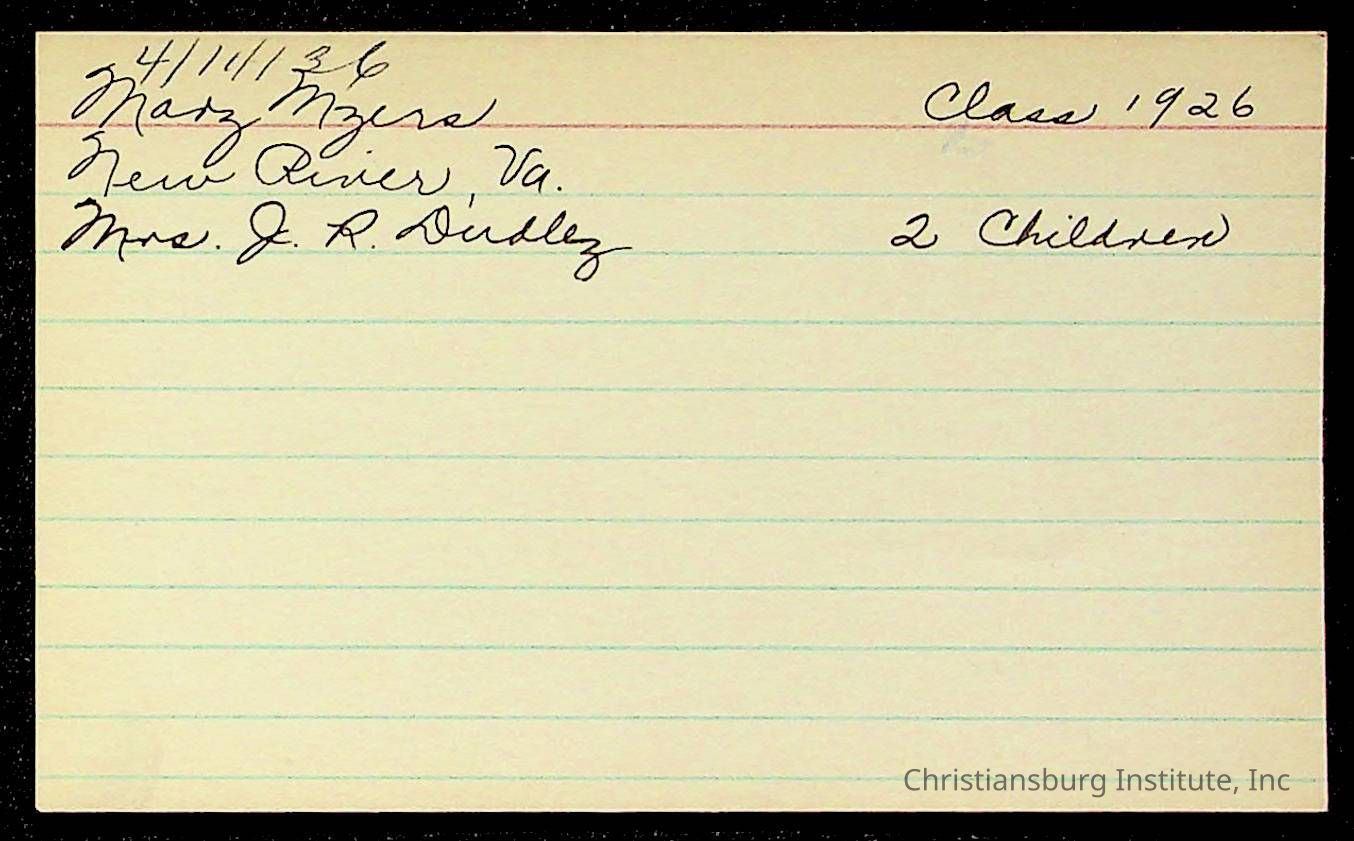 4/11/36
Mary Myers Class 1926
New River, Va.
Mrs. J. R. Dudley 2 Children
Christiansburg Institute, Inc